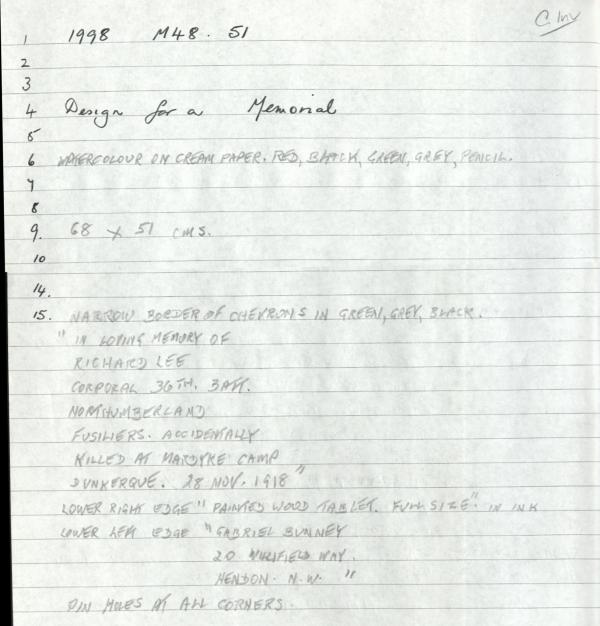 C. Inv
1 1998 M48. 51
2
3
4 Design for a Memorial
5
6 WATERCOLOUR ON CREAM PAPER. RED, BLACK, GREEN, GREY, PENCIL.
7
8
9. 68 x 51 CMS.
10
14.
15. NARROW BORDER OF CHEVRONS IN GREEN, GREY, BLACK.
" IN LOVING MEMORY OF
RICHARD LEE
CORPORAL 36TH. BATT.
NORTHUMBERLAND
FUSILIERS. ACCIDENTALLY
KILLED AT MARDYKE CAMP
DUNKERQUE. 28 NOV. 1918 "
LOWER RIGHT EDGE " PAINTED WOOD TABLET. FULL SIZE " IN INK
LOWER LEFT EDGE " GABRIEL BUNNEY
20 WAY.
HENDON. N.W. "
PIN HOLES AT ALL CORNERS.